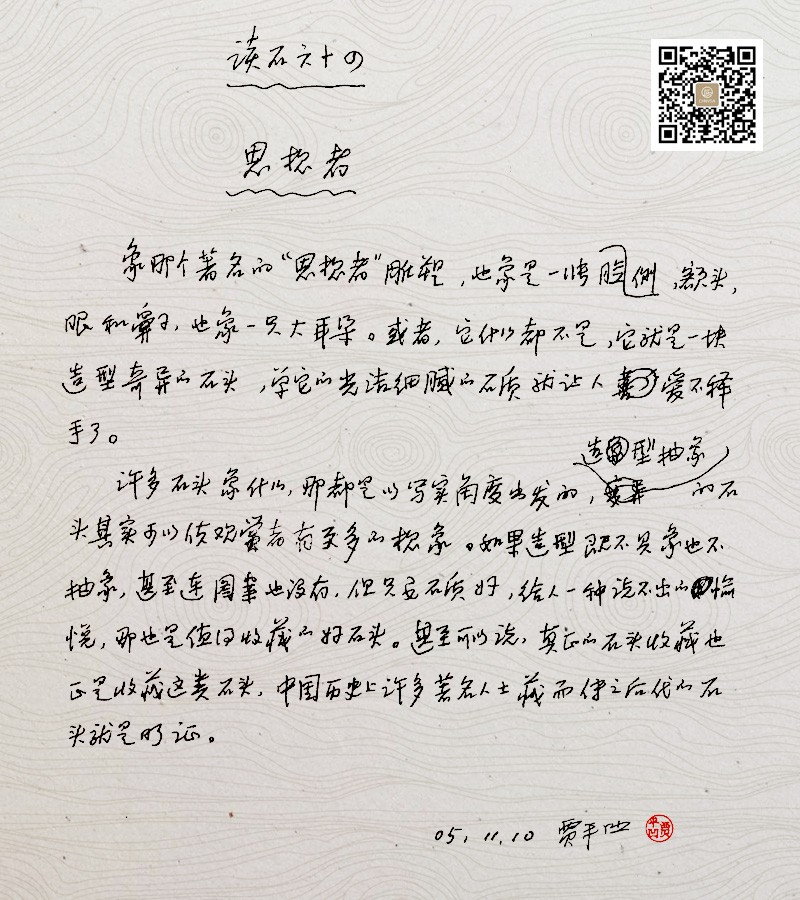 读石六十四
思想者
象那个著名的“思想者”雕塑，也象是一张侧脸，额头，
眼和鼻子，也象一只大耳朵。或者，它什么都不是，它就是一块
造型奇异的石头，单它的光洁细腻的石质就让人爱不释
手了。
许多石头象什么，那都是以写实角度出发的，造型抽象的石
头其实可以使欢赏者有更多的想象。如果造型既不具象也不
抽象，甚至连图案也没有，但只要石质好，给人一种说不出的愉
悦，那也是值得收藏的好石头。甚至可以说，真正的石头收藏也
正是收藏这类石头，中国历史上许多著名人士藏而传之后代的石
头就是明证。
05.11.10 贾平凹
贾平凹